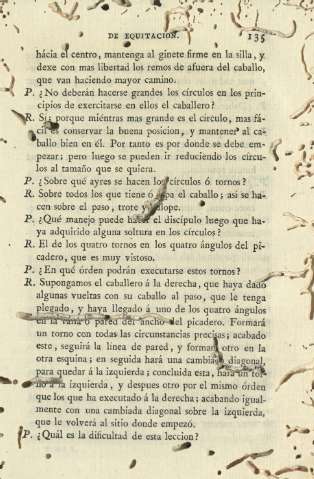 DE EQUITACION. 135
hácia el centro, mantenga al ginete firme en la silla, y
dexe con mas libertad los remos de afuera del caballo,
que van haciendo mayor camino.
P. ¿No deberán hacerse grandes los círculos en los prin-
cipios de exercitarse en ellos el caballero?
R. Si; porque miéntras mas grande es el circulo, mas fá-
cil es conservar la buena posicion, y mantener al ca-
ballo bien en él. Por tanto es por donde se debe em-
pezar; pero luego se pueden ir reduciendo los círcu-
los al tamaño que se quiera.
P. ¿Sobre qué ayres se hacen los círculos ó tornos?
R. Sobre todos los que tiene ó sepa el caballo; asi se ha-
cen sobre el paso, trote y galope.
P. ¿Qué manejo puede hacer el discípulo luego que ha-
ya adquirido alguna soltura en los círculos?
R. El de los quatro tornos en los quatro ángulos del pi-
cadero, que es muy vistoso.
P. ¿En qué órden podrán executarse estos tornos?
R. Supongamos el caballero á la derecha, que haya dado
algunas vueltas con su caballo al paso, que le tenga
plegado, y haya llegado á uno de los quatro ángulos
en la línea ó pared del ancho del picadero. Formará
un torno con todas las circunstancias precisas; acabado
este, seguirá la linea de pared, y formará otro en la
otra esquina; en seguida hará una cambiada diagonal,
para quedar á la izquierda; concluida esta, hará un tor-
no á la izquierda, y despues otro por el mismo órden
que los que ha executado á la derecha; acabando igual-
mente con una cambiada diagonal sobre la izquierda,
que le volverá al sitio donde empezó.
P. ¿Quál es la dificultad de esta leccion?